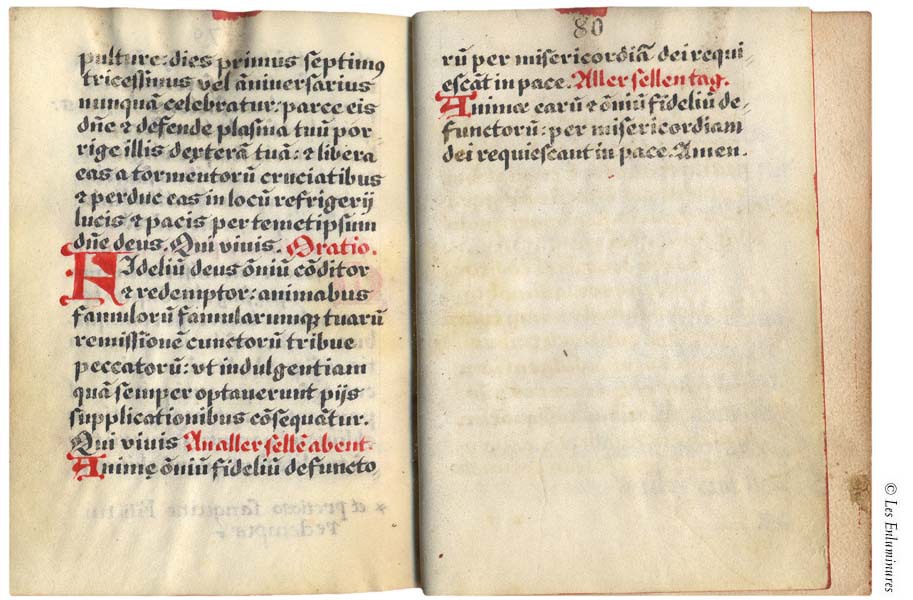 pulture: dies primus septimꝰ
tricessimus vel ãniversarius
nunquã celebratur: parce eis
dñe ⁊ defende plasma tuũ por-
rige illis dexterã tuã: ⁊ libera
eas a tormentorũ cruciatibus
⁊ perduc eas in locũ refrigerij
lucis ⁊ pacis per temetipsum
dñe deus. Qui vivis. Oratio.
Fideliũ deus õniũ cõditor
⁊ redemptor: animabus
famulorũ famularumqꝫ tuarũ
remissionẽ cunctorũ tribue
peccatorũ: vt indulgentiam
quã semper optaverunt pijs
supplicationibus cõsequãtur.
Qui vivis An aller sellẽ abent.
Animę õniũ fideliũ defuncto
80
rũ per misericordiã dei requi
escãt in pace. Aller sellen tag.
Animæ earũ ⁊ õniũ fideliũ de-
functorũ: per misericordiam
dei requiescant in pace. Amen.
© Les Enluminures